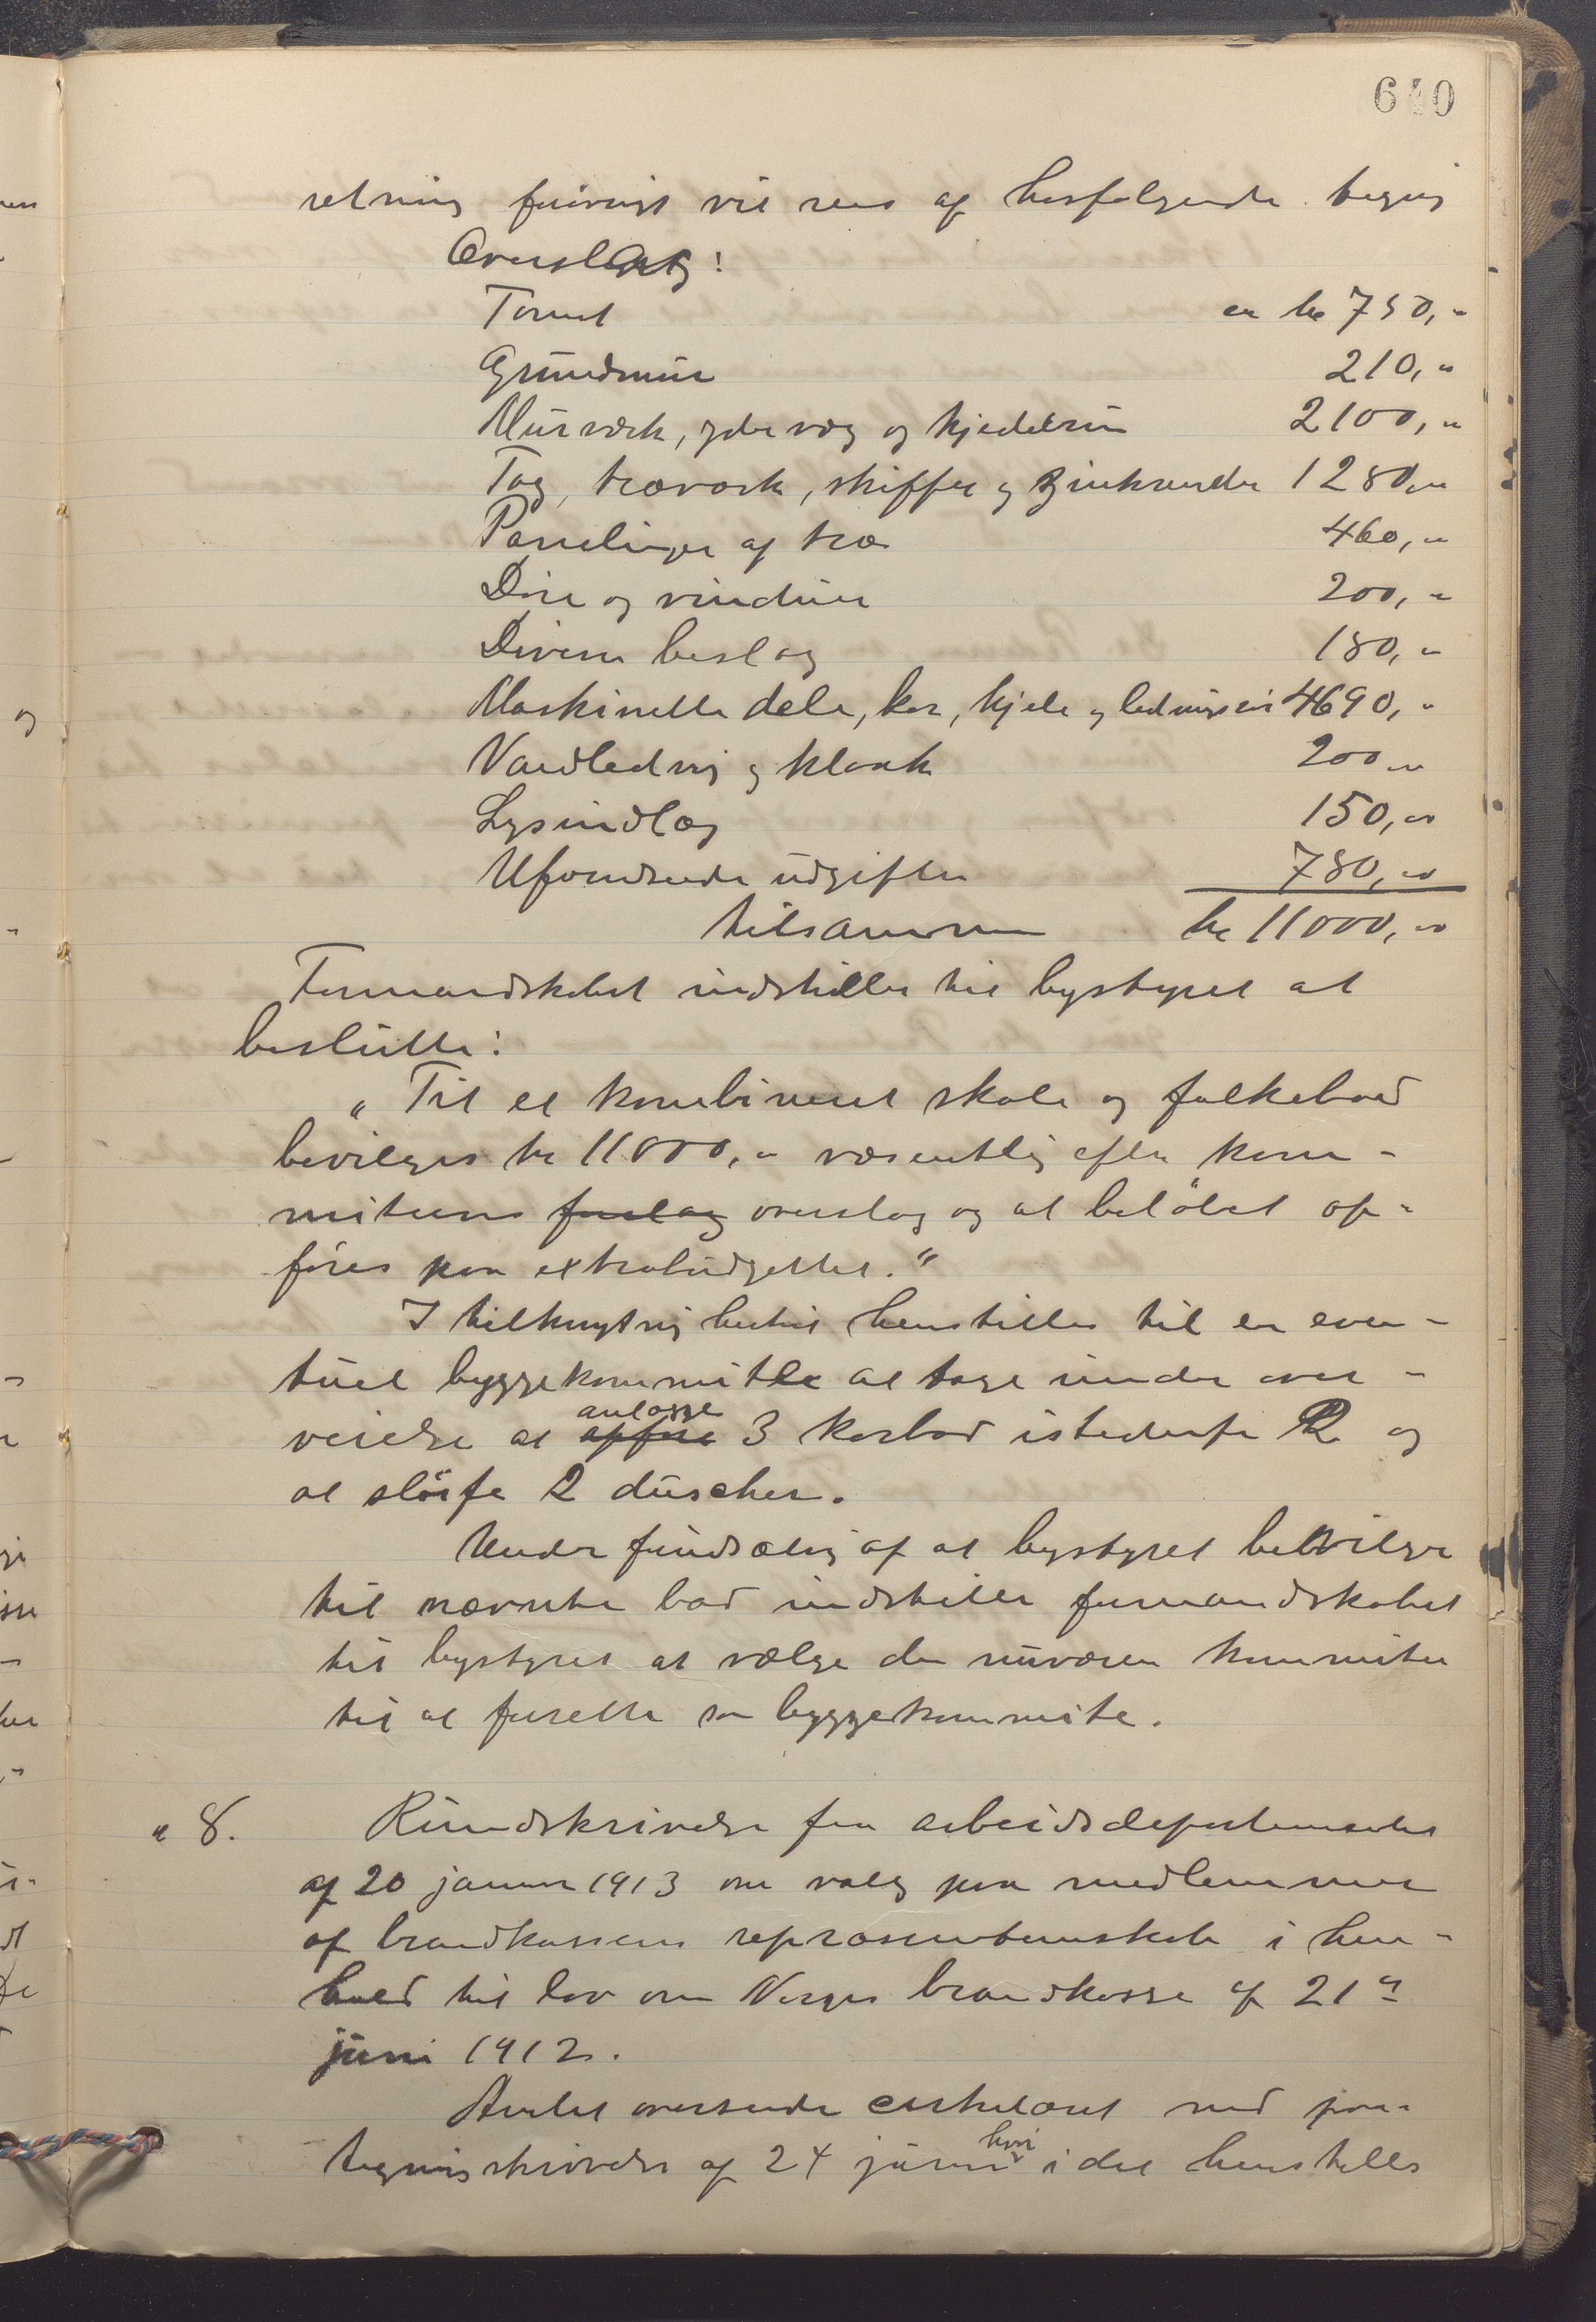 640
retning forøvrigt vil sees af hosfølgende tegning
Overslag:
Tomt ca kr 750,-
Grundmur 210,-
Murværk, ydervæg og kjedelrum 2100,-
Tag, træværk, skiffer og zinkrender 1280,-
Panelinger af træ 460,-
Døre og vinduer 200,-
Diverse beslag 180,-
Maskinelle dele, kar, kjele og ledninger 4690,-
Vandledning og kloak 200,-
Lysindlæg 150,-
Uforudseede udgifter 780,-
tilsammen kr 11000,-
Formandskabet indstiller til bystyret at
beslutte:
"Til et kombineret skole og folkebad
bevilges kr 11000,- væsentlig efter kom-
miteens forslag overslag og at beløbet op-
føres paa extrabudgettet."
I tilknytning hertil henstilles til en even-
tuel byggekommitte at tage under over-
veielse at opføre anlægge 3 karbad istedenfor 2 og
at sløife 2 duscher.
Under forudsætning af at bystyret bevilger
til nævnte bad indstiller formandskabet
til bystyret at vælge den nuværen kommitee
til at fortsette som byggekommite.
" 8. Rundskrivelse fra arbeidsdepartementet
af 20 januar 1913 om valg paa medlemmer
af brandkassens repræsentantskab i hen-
hold til lov om Norges brandkasse af 21de
juni 1912.
Amtet oversender cirkulæret med paa-
tegningsskrivelse af 24 januar hvori det henstilles